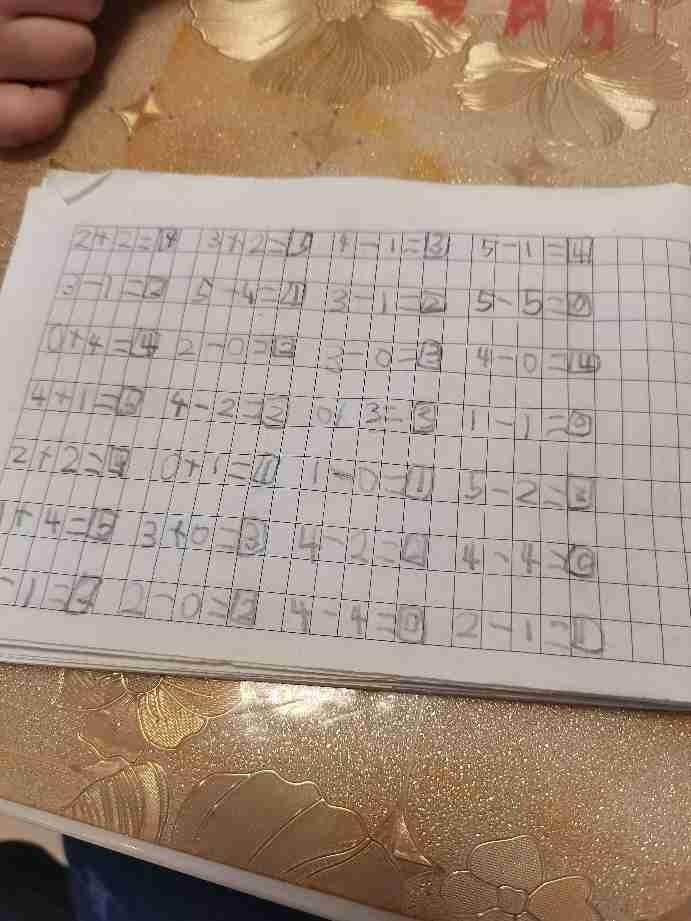 2+2=4 3+2=5 4-1=3 5-1=4
3-1=2 5-4=1 3-1=2 5-5=0
0+4=4 2-0=2 3-0=3 4-0=4
4+1=5 4-2=2 0+3=3 1-1=0
2+2=4 0+1=1 1-0=1 5-2=3
1+4=5 3+0=3 4-2=2 4-4=0
-1= 2-0=2 4-4=0 2-1=1